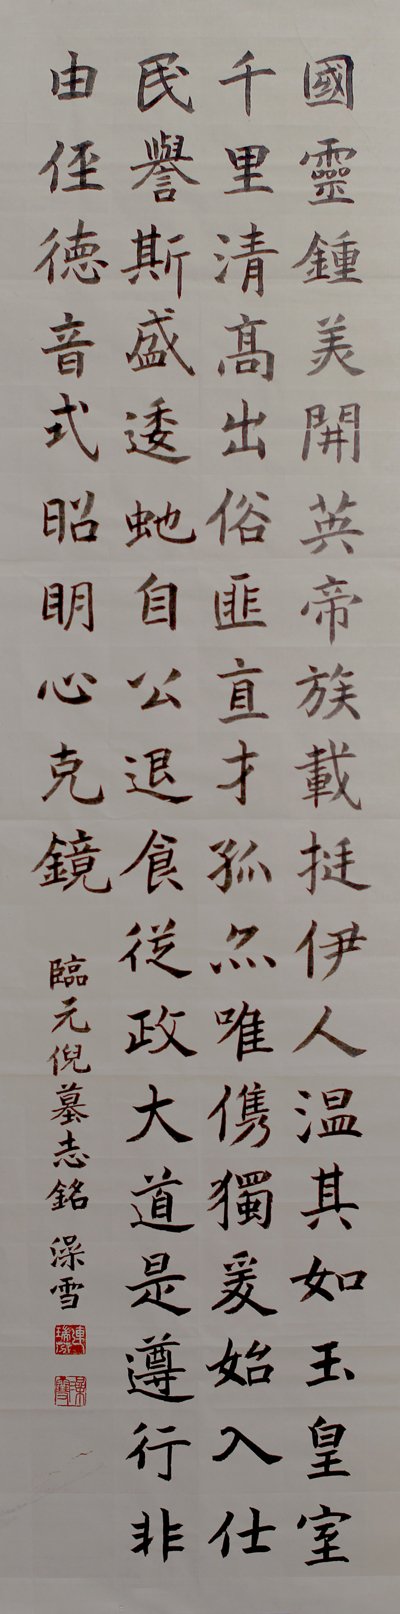 國靈鍾美開英帝族載挺伊人温其如玉皇室
千里清髙出俗匪直才孤亦唯儁獨爰始入仕
民譽斯盛逶虵自公退食從政大道是遵行非
由俓德音式昭明心克鏡
臨元倪墓志銘 澡雪